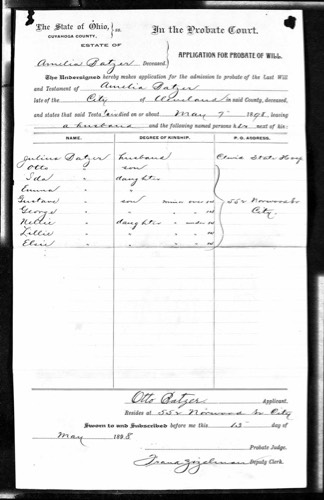 The State of Ohio, } ss.
CUYAHOGA COUNTY,
In the Probate Court.
ESTATE OF
Amelia Batzer Deceased.
APPLICATION FOR PROBATE OF WILL.
The Undersigned hereby makes application for the admission to probate of the Last Will
and Testament of Amelia Batzer
late of the City of Cleveland in said County, deceased,
and states that said Testatrix died on or about May 7" 1898, leaving
a husband and the following named persons her next of kin:
NAME. DEGREE OF KINSHIP. P. O. ADDRESS.
Julius Batzer husband State Hosp
Otto " son
Ida " daughter
Emma " "
Gustave " son minor over 14 552 Norwood St
George " " " " 14 City.
Nellie " daughter " under 12
Lillie " " " " 12
Elsie " " " " 12
Otto Batzer Applicant.
Resides at 552 Norwood St City
Sworn to and Subscribed before me this 13" day of
May 1898
Probate Judge.
Deputy Clerk.